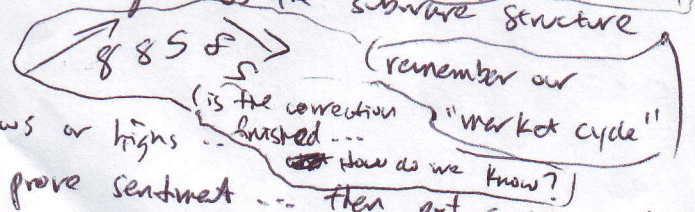 subwave structure
8 8 5 8
5
(remember our
"market cycle"
(is the correction
finished ...
How do we know?)
ws or highs ..
prove sentiment ... then